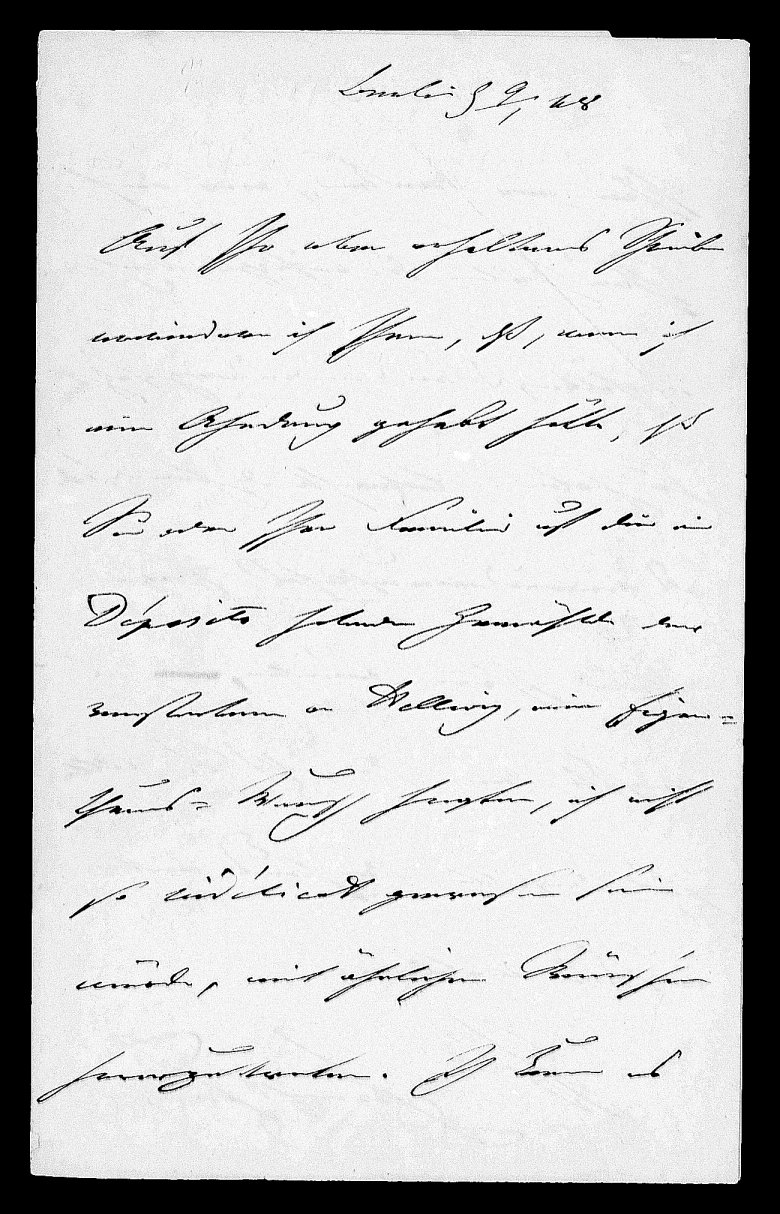 Berlin 9/ 48
Auf Ihr eben erhaltenes Schreiben
erwiedere ich Ihnen, daß, wenn ich
eine Ahndung gehabt hätte, daß
Sie oder Ihre Familie auf die in
Déposito Gemählde des
verstorbenen v Hellwig, eine Eigen-
thums- Anspruch, ich nicht
so indélicat gewesen sein
würde, mit ähnlichen Wünschen
hervorzutreten. Ich kann es